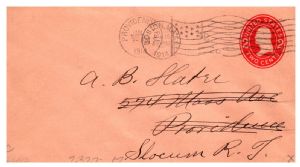 BOSTON
1914
UNITED STATES
TWO CENTS
A. B. Slater
574 Mass Ave
Providence
Slocum R. I.